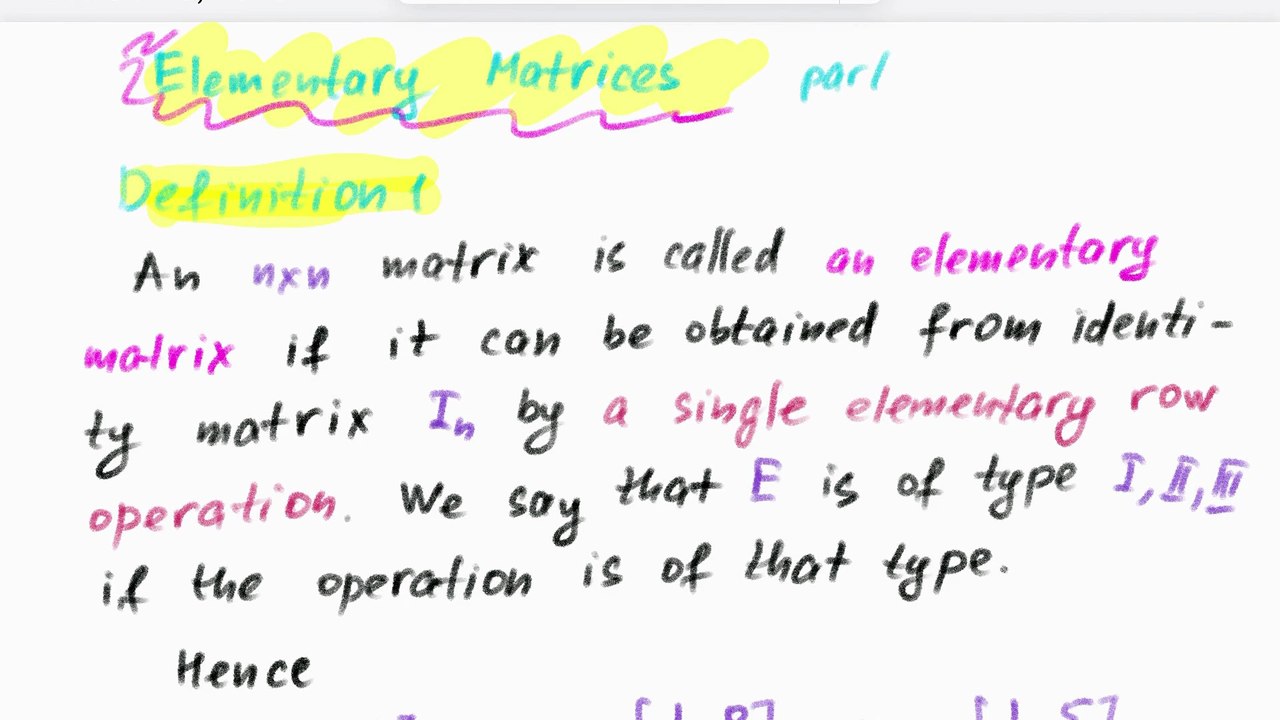 Elementary Matrices par
Definition 1
An nxn matrix is called an elementary
matrix if it can be obtained from identi-
ty matrix In by a single elementary row
operation. We say that E is of type I, II, III
if the operation is of that type.
Hence